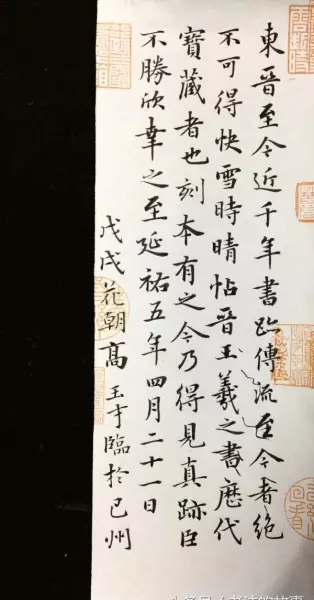 東晉至今近千年書跡傳流至今者絕
不可得快雪時晴帖晉王羲之書歷代
寶藏者也刻本有之今乃得見真跡臣
不勝欣幸之至延祐五年四月二十一日
戊戌花朝髙 臨於巴州